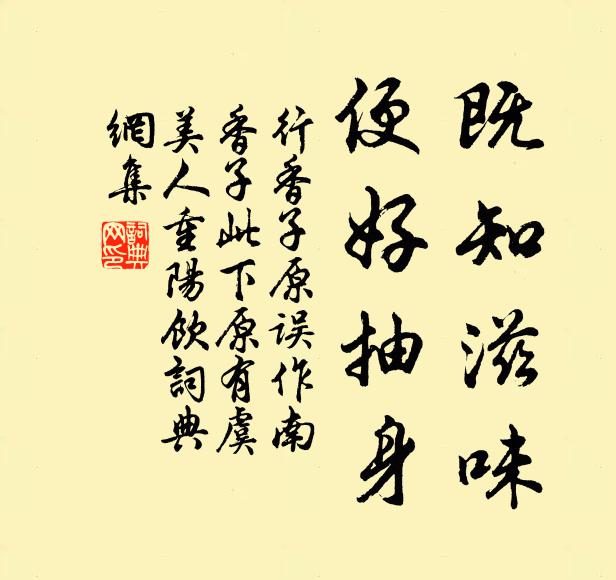 既知滋味
便好抽身
行香子原误作南
香子此下原有虞
美人重陽飲詞典
網集
詞典
网印